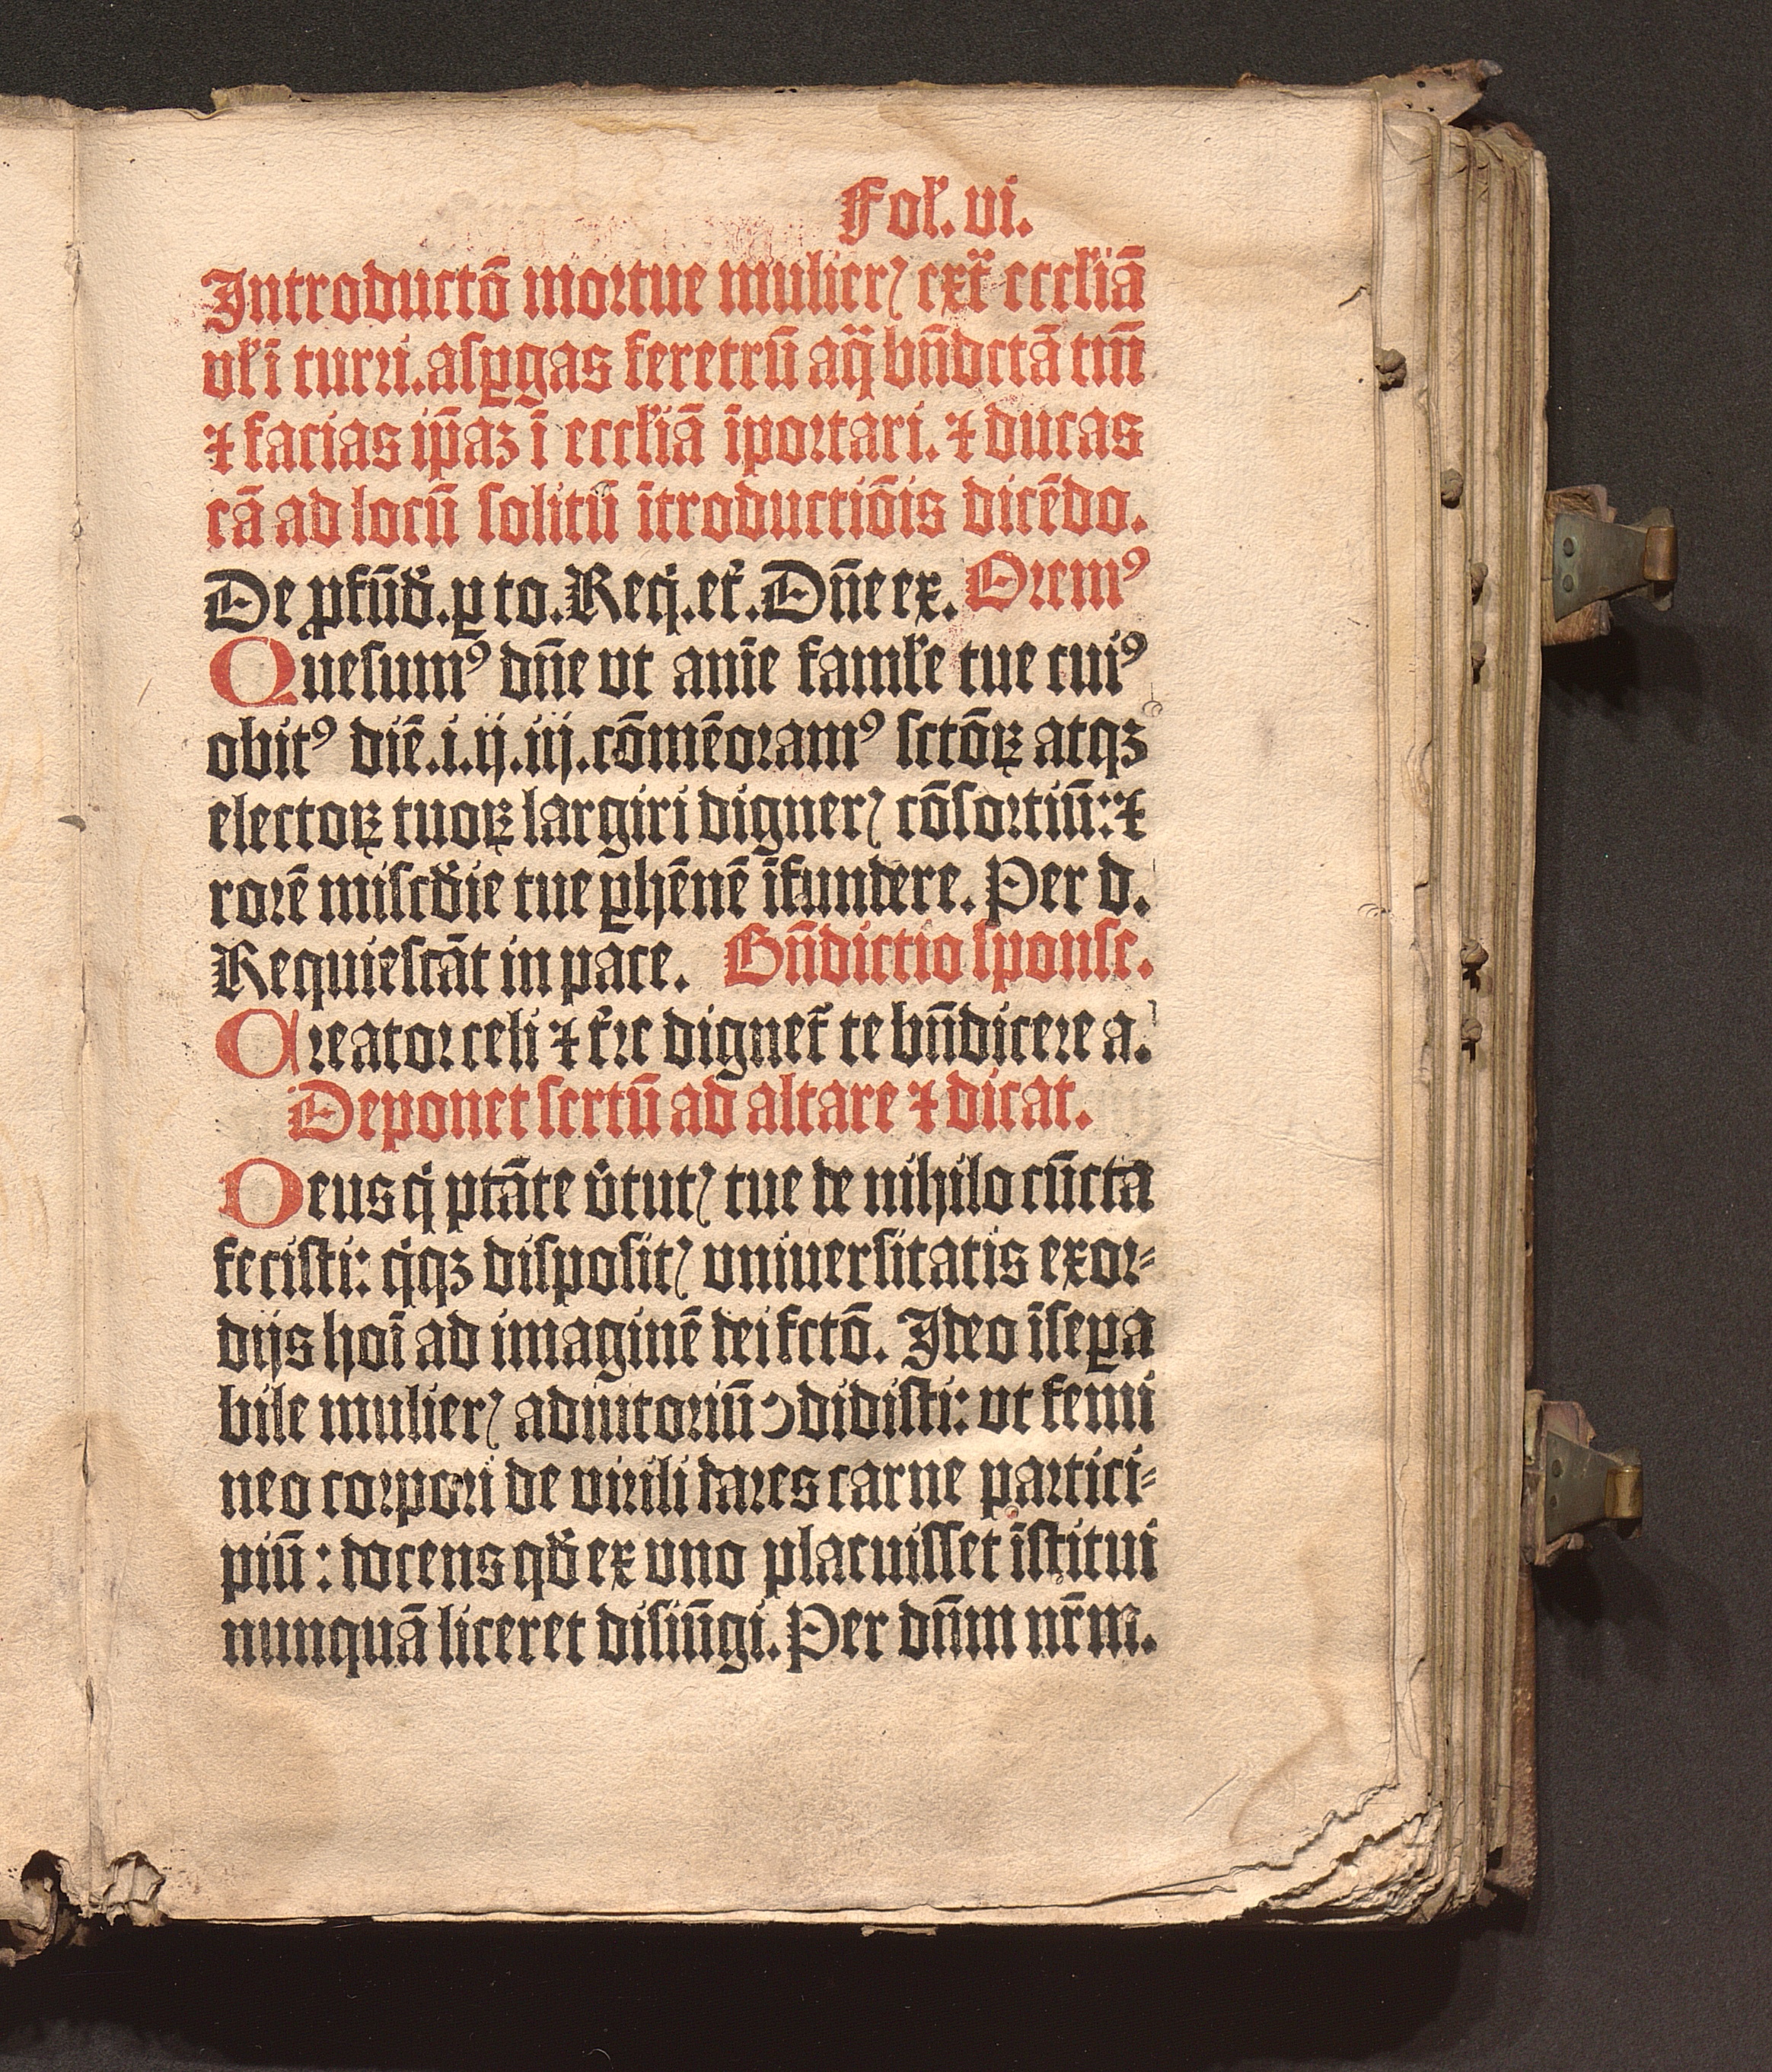 Fol̄. vi.
Introductō mortue mulierꝭ ext̄ eccl̄iā
vl̄ i turri. aſꝑgas feretrū aq̄ bn̄dctā tm̄
⁊ facias ip̄aꝫ ī eccl̄iā īportari. ⁊ ducas
eā ad locū ſolitū ītroductiōis dicēdo.
De ꝓfūd̄. ꝑ to. Req̇. et̄. Dn̄e ex. Oremꝰ
Queſumꝰ dn̄e vt anīe faml̄e tue cuiꝰ
obitꝰ diē .i.ij.iij. cōmēoramꝰ ſctōꝝ atqꝫ
electoꝝ tuoꝝ largiri dignerꝭ cōſortiū: ⁊
rorē miſcd̄ie tue ꝑhēnē īfundere. Per d.
Requieſcāt in pace. Bn̄dictio ſponſe.
Creator celi ⁊ t̄re dignet̄ te bn̄dicere a.
Deponet ſertū ad altare ⁊ dicat.
Deus q̇ ptāte v̄tutꝭ tue de nihilo cūcta
feciſti: q̇qꝫ diſpoſitꝭ vniuerſitatis exor⸗
dijs hoī ad imaginē dei fctō. Ideo īſepa
bile mulierꝭ adiutoriū ↄdidiſti: vt femi
neo corpori de virili dares carne partici⸗
piū : docens qd̄ ex vno placuiſſet īſtitui
nunquā liceret diſiūgi. Per dn̄m nr̄m.